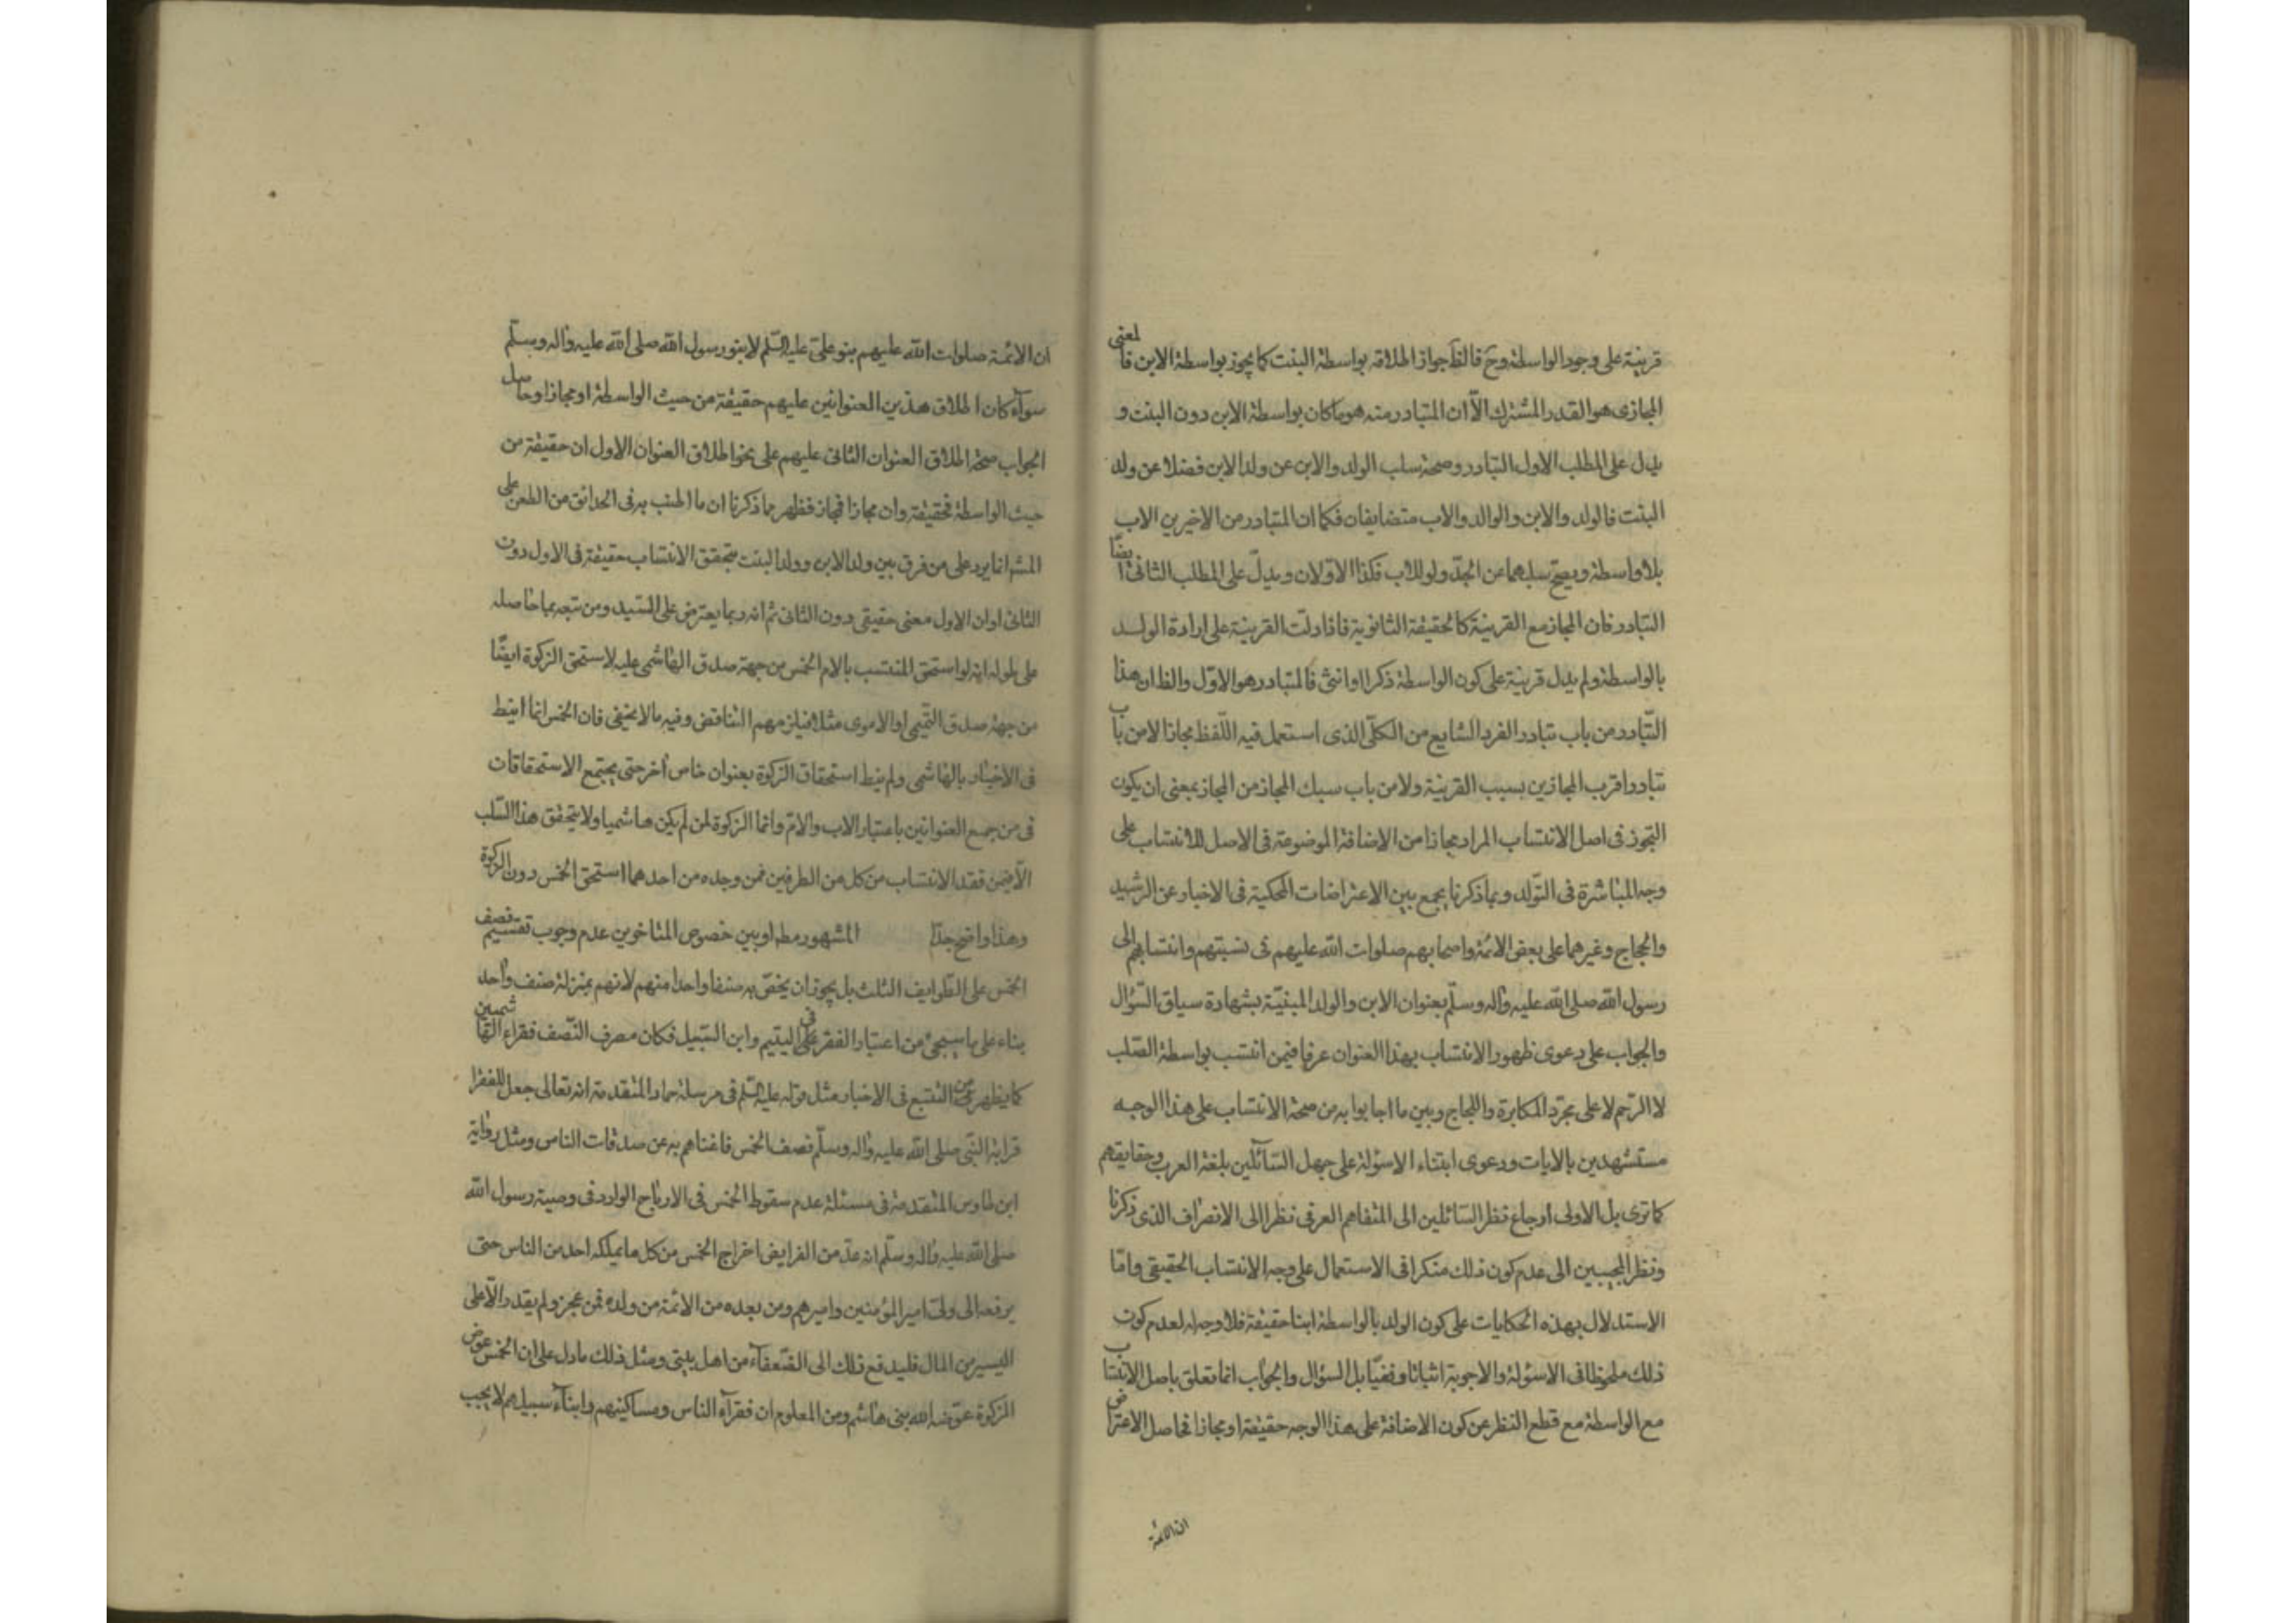 قرينة على وجود الواسطة وح فالظ جواز اطلاقه بواسطة البنت كما يجوز بواسطة الابن فالمعنى
المجازى هو القدر المشترك الّا ان المتبادر منه هو ما كان بواسطة الابن دون البنت و
يدل على المطلب الاول التبادر وصحة سلب الولد والابن عن ولد الابن فضلا عن ولد
البنت فالولد والابن والوالد والاب متضايفان فكما ان المتبادر من الاخيرين الاب
بلا واسطة ويصح سلبهما عن الجدّ ولو للاب فكذا الاوّلان ويدلّ على المطلب الثانى ايضًا
التبادر فان المجاز مع القرينة كالحقيقة الثانوية فاذا دلت القرينة على ارادة الولد
بالواسطة ولم يدل قرينة على كون الواسطة ذكرا او انثى فالمتبادر هو الاوّل والظ ان هذا
التّبادر من باب تبادر الفرد الشايع من الكلّى الذى استعمل فيه اللّفظ مجازا لا من باب
تبادر اقرب المجازين بسبب القرينة ولا من باب سبك المجاز من المجاز بمعنى ان يكون
التجوز فى اصل الانتساب المراد مجازا من الاضافة الموضوعة فى الاصل للانتساب على
وجه المباشرة فى التّولد وبما ذكرنا يجمع بين الاعتراضات المحكية فى الاخبار عن الرشيد
والحجاج وغيرهما على بعض الائمّة واصحابهم صلوات الله عليهم فى نسبتهم وانتسابهم الى
رسول الله صلى الله عليه واله وسلّم بعنوان الابن والولد المبنيّة بشهادة سياق السّؤال
والجواب على دعوى ظهور الانتساب بهذا العنوان عرفا فيمن انتسب بواسطة الصّلب
لا الرّحم لا على مجرّد المكابرة واللجاج وبين ما اجابوا به من صحة الانتساب على هذا الوجه
مستشهدين بالايات ودعوى ابتناء الاسئولة على جهل السّائلين بلغة العرب وحقايقهم
كما ترى بل الاولى ارجاع نظر السّائلين الى المتفاهم العرفى نظرا الى الانصراف الذى ذكرنا
ونظر المجيبين الى عدم كون ذلك منكرا فى الاستعمال على وجه الانتساب الحقيقى وامّا
الاستدلال بهذه الحكايات على كون الولد بالواسطة ابنا حقيقة فلا وجه له لعدم كون
ذلك ملحوظا فى الاسئولة والاجوبة اثباتا ونفيّا بل السؤال والجواب انما تعلق باصل الانتساب
مع الواسطة مع قطع النظر عن كون الاضافة على هذا الوجه حقيقة او مجازا فحاصل الاعتراض
ان الائمّة
ان الائمّة صلوات الله عليهم بنو علىّ عليه السّلم لا بنو رسول الله صلى الله عليه واله وسلّم
سوآء كان اطلاق هذين العنوانين عليهم حقيقة من حيث الواسطة او مجازا وحاصل
الجواب صحة اطلاق العنوان الثانى عليهم على نحو اطلاق العنوان الاول ان حقيقة من
حيث الواسطة فحقيقة وان مجازا فمجاز فظهر مما ذكرنا ان ما اطنب به فى الحدائق من الطعن على
المش انما يرد على من فرق بين ولد الابن وولد البنت بتحقق الانتساب حقيقة فى الاول دون
الثانى او ان الاول معنى حقيقى دون الثانى ثم انه ربما يعترض على السّيد ومن تبعه بما حاصله
على طوله انه لو استحق المنتسب بالام الخمس من جهة صدق الهاشمى عليه لاستحق الزكوة ايضًا
من جهة صدق التّيمى او الاموى مثلا فيلزمهم التناقض وفيه ما لا يخفى فان الخمس انما انيط
فى الاخبار بالهاشمى ولم ينط استحقاق الزكوة بعنوان خاص أخر حتى يجتمع الاستحقاقات
فى من جمع العنوانين باعتبار الاب والامّ وانما الزكوة لمن لم يكن هاشميا ولا يتحقق هذا السّلب
الّا فيمن فقد الانتساب من كل من الطرفين فمن وجده من احدهما استحق الخمس دون الزكوة
وهذا واضح جدّا المشهور مطم او بين خصوص المتاخرين عدم وجوب تقسيم نصف
الخمس على الطّوايف الثلث بل يجوز ان يخصّ به صنفا واحدا منهم لانهم بمنزلة صنف واحد
بناء على ما سيجئ من اعتبار الفقر فى اليتيم وابن السّبيل فكان مصرف النّصف فقراء الهاشميين
كما يظهر من التتبع فى الاخبار مثل قوله عليه السّلم فى مرسلة حماد المتقدمة انه تعالى جعل للفقرا
قرابة النّبى صلى الله عليه واله وسلّم نصف الخمس فاغناهم به عن صدقات الناس ومثل رواية
ابن طاوس المتقدمة فى مسئلة عدم سقوط الخمس فى الارباح الوارد فى وصية رسول الله
صلى الله عليه واله وسلّم انه عدّ من الفرايض اخراج الخمس من كل ما يملكه احد من الناس حتى
يرفعه الى ولىّ امير المؤمنين واميرهم ومن بعده من الائمّة من ولده فمن عجز ولم يقدر الّا على
اليسير من المال فليدفع ذلك الى الضّعفآء من اهل بيتى ومثل ذلك ما دل على ان الخمس عوض
الزكوة عوّضه الله بنى هاشم ومن المعلوم ان فقرآء الناس ومساكينهم وابنآء سبيلهم لا يجب